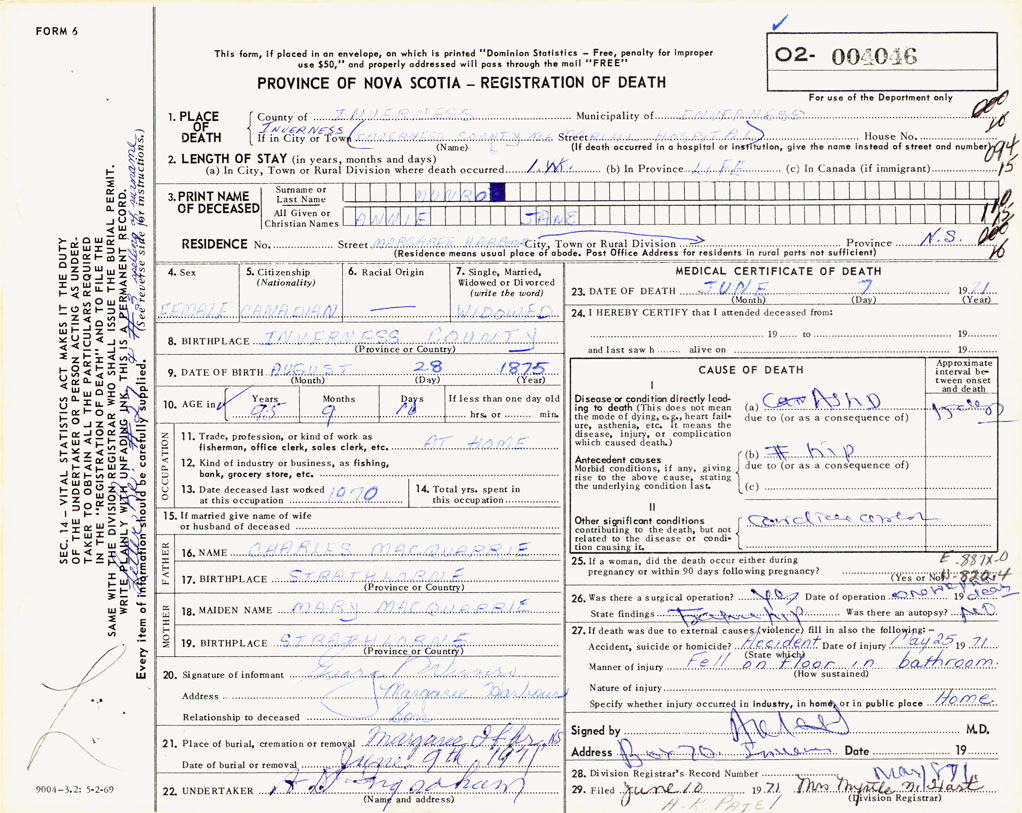 FORM 6
This form, if placed in an envelope, on which is printed "Dominion Statistics – Free, penalty for improper
use $50," and properly addressed will pass through the mail "FREE"
PROVINCE OF NOVA SCOTIA – REGISTRATION OF DEATH
O2- 004046
For use of the Department only
1. PLACE OF DEATH
County of INVERNESS Municipality of INVERNESS
000
If in City or Town INVERNESS (INVERNESS COUNTY MEMORIAL HOSPITAL) Street House No.
(Name) (If death occurred in a hospital or institution, give the name instead of street and number)
2. LENGTH OF STAY (in years, months and days)
094
(a) In City, Town or Rural Division where death occurred 1. WK. (b) In Province LIFE (c) In Canada (if immigrant)
15
3. PRINT NAME OF DECEASED
Surname or Last Name MUNRO
All Given or Christian Names ANNIE JANE
RESIDENCE No. Street MARGAREE HARBOUR City, Town or Rural Division Province N.S.
000
(Residence means usual place of abode. Post Office Address for residents in rural ports not sufficient)
4. Sex
FEMALE
5. Citizenship (Nationality)
CANADIAN
6. Racial Origin
7. Single, Married, Widowed or Divorced (write the word)
WIDOWED
8. BIRTHPLACE INVERNESS COUNTY
(Province or Country)
9. DATE OF BIRTH AUGUST 28 1875
(Month) (Day) (Year)
10. AGE in Years Months Days If less than one day old
95 9 hrs. or min.
OCCUPATION
11. Trade, profession, or kind of work as fisherman, office clerk, sales clerk, etc. AT HOME
12. Kind of industry or business, as fishing, bank, grocery store, etc.
13. Date deceased last worked at this occupation 1970
14. Total yrs. spent in this occupation
15. If married give name of wife or husband of deceased
FATHER
16. NAME CHARLES MACQUARRIE
17. BIRTHPLACE STRATHLORNE
(Province or Country)
MOTHER
18. MAIDEN NAME MARY MACQUARRIE
19. BIRTHPLACE STRATHLORNE
(Province or Country)
20. Signature of informant
Address Margaree Harbour
Relationship to deceased Son
21. Place of burial, cremation or removal Margaree Hbr, NS
Date of burial or removal June 9th 1971
22. UNDERTAKER
(Name and address)
MEDICAL CERTIFICATE OF DEATH
23. DATE OF DEATH JUNE 7 1971
(Month) (Day) (Year)
24. I HEREBY CERTIFY that I attended deceased from:
19 to 19
and last saw h alive on 19
CAUSE OF DEATH
Approximate interval between onset and death
I
Disease or condition directly leading to death (This does not mean the mode of dying, e.g., heart failure, asthenia, etc. It means the disease, injury, or complication which caused death.)
(a) ASHD
due to (or as a consequence of)
Antecedent causes
Morbid conditions, if any, giving rise to the above cause, stating the underlying condition last.
(b) # hip
due to (or as a consequence of)
(c)
II
Other significant conditions
contributing to the death, but not related to the disease or condition causing it.
25. If a woman, did the death occur either during pregnancy or within 90 days following pregnancy?
(Yes or No)
E-887X-0
N-820-4
26. Was there a surgical operation? Yes Date of operation 19
State findings hip Was there an autopsy? NO
27. If death was due to external causes (violence) fill in also the following: –
Accident, suicide or homicide? Accident Date of injury May 25 1971
(State which)
Manner of injury Fell on Floor in bathroom.
(How sustained)
Nature of injury
Specify whether injury occurred in industry, in home, or in public place Home
Signed by M.D.
Address Box 70. Date 19
28. Division Registrar's Record Number
29. Filed June 10 1971 Mrs Myrtle Hart
(Division Registrar)
A.K. PATEL
SEC. 14 – VITAL STATISTICS ACT MAKES IT THE DUTY
OF THE UNDERTAKER OR PERSON ACTING AS UNDER-
TAKER TO OBTAIN ALL THE PARTICULARS REQUIRED
IN THE "REGISTRATION OF DEATH" AND TO FILE THE
SAME WITH THE DIVISION REGISTRAR WHO SHALL ISSUE THE BURIAL PERMIT.
WRITE PLAINLY WITH UNFADING INK, THIS IS A PERMANENT RECORD.
Every item of information should be carefully supplied. (See reverse side for instructions.)
spelling of surname
9004-3.2: 5-2-69